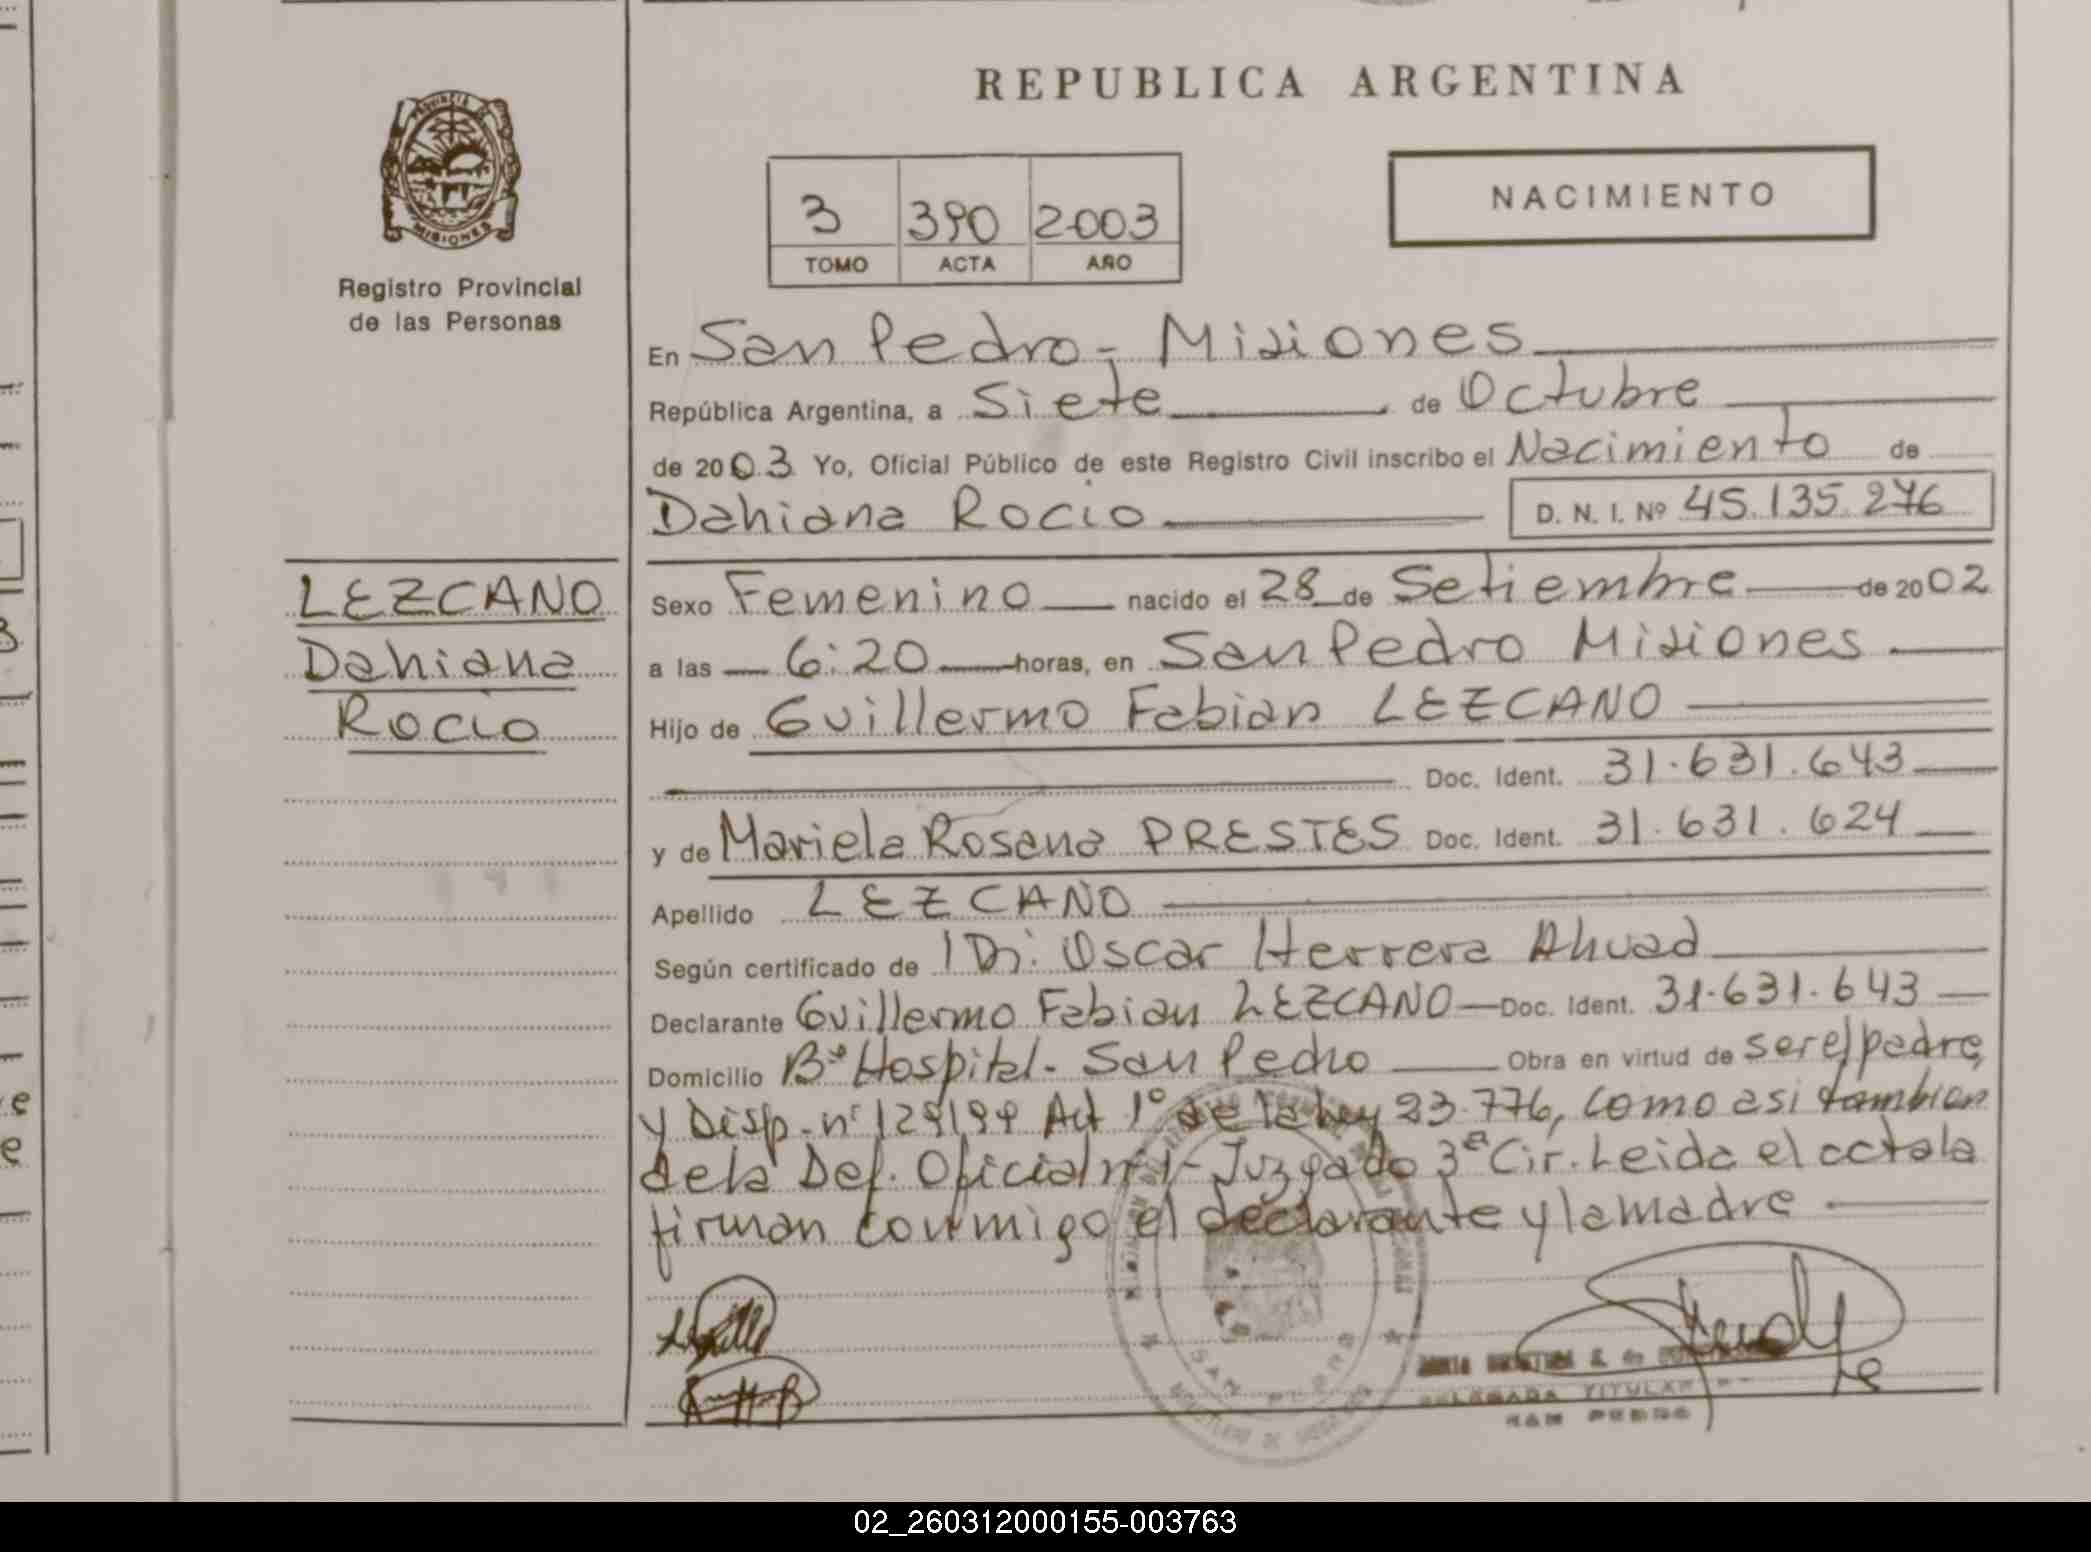 REPUBLICA ARGENTINA
PROVINCIA DE
MISIONES
Registro Provincial
de las Personas
NACIMIENTO
3 390 2003
TOMO ACTA AÑO
En San Pedro - Misiones
República Argentina, a Siete de Octubre
de 2003 Yo, Oficial Público de este Registro Civil inscribo el Nacimiento de
Dahiana Rocio D. N. I. Nº 45.135.276
LEZCANO
Dahiana
Rocio
Sexo Femenino nacido el 28 de Setiembre de 2002
a las 6:20 horas, en San Pedro Misiones
Hijo de Guillermo Fabian LEZCANO
Doc. Ident. 31.631.643
y de Mariela Rosana PRESTES Doc. Ident. 31.631.624
Apellido LEZCANO
Según certificado de Dr. Oscar Herrera Ahuad
Declarante Guillermo Fabian LEZCANO Doc. Ident. 31.631.643
Domicilio Bº Hospital - San Pedro Obra en virtud de ser el padre,
y Disp. nº Art 1º de la ley 23.776, como asi tambien
de la Def. Oficial nº 1 - Juzgado 3ª Cir. Leida el acta la
firman conmigo el declarante y la madre
SAN PEDRO
MINISTERIO DE GOBIERNO
DELEGADA TITULAR
SAN PEDRO
02_260312000155-003763